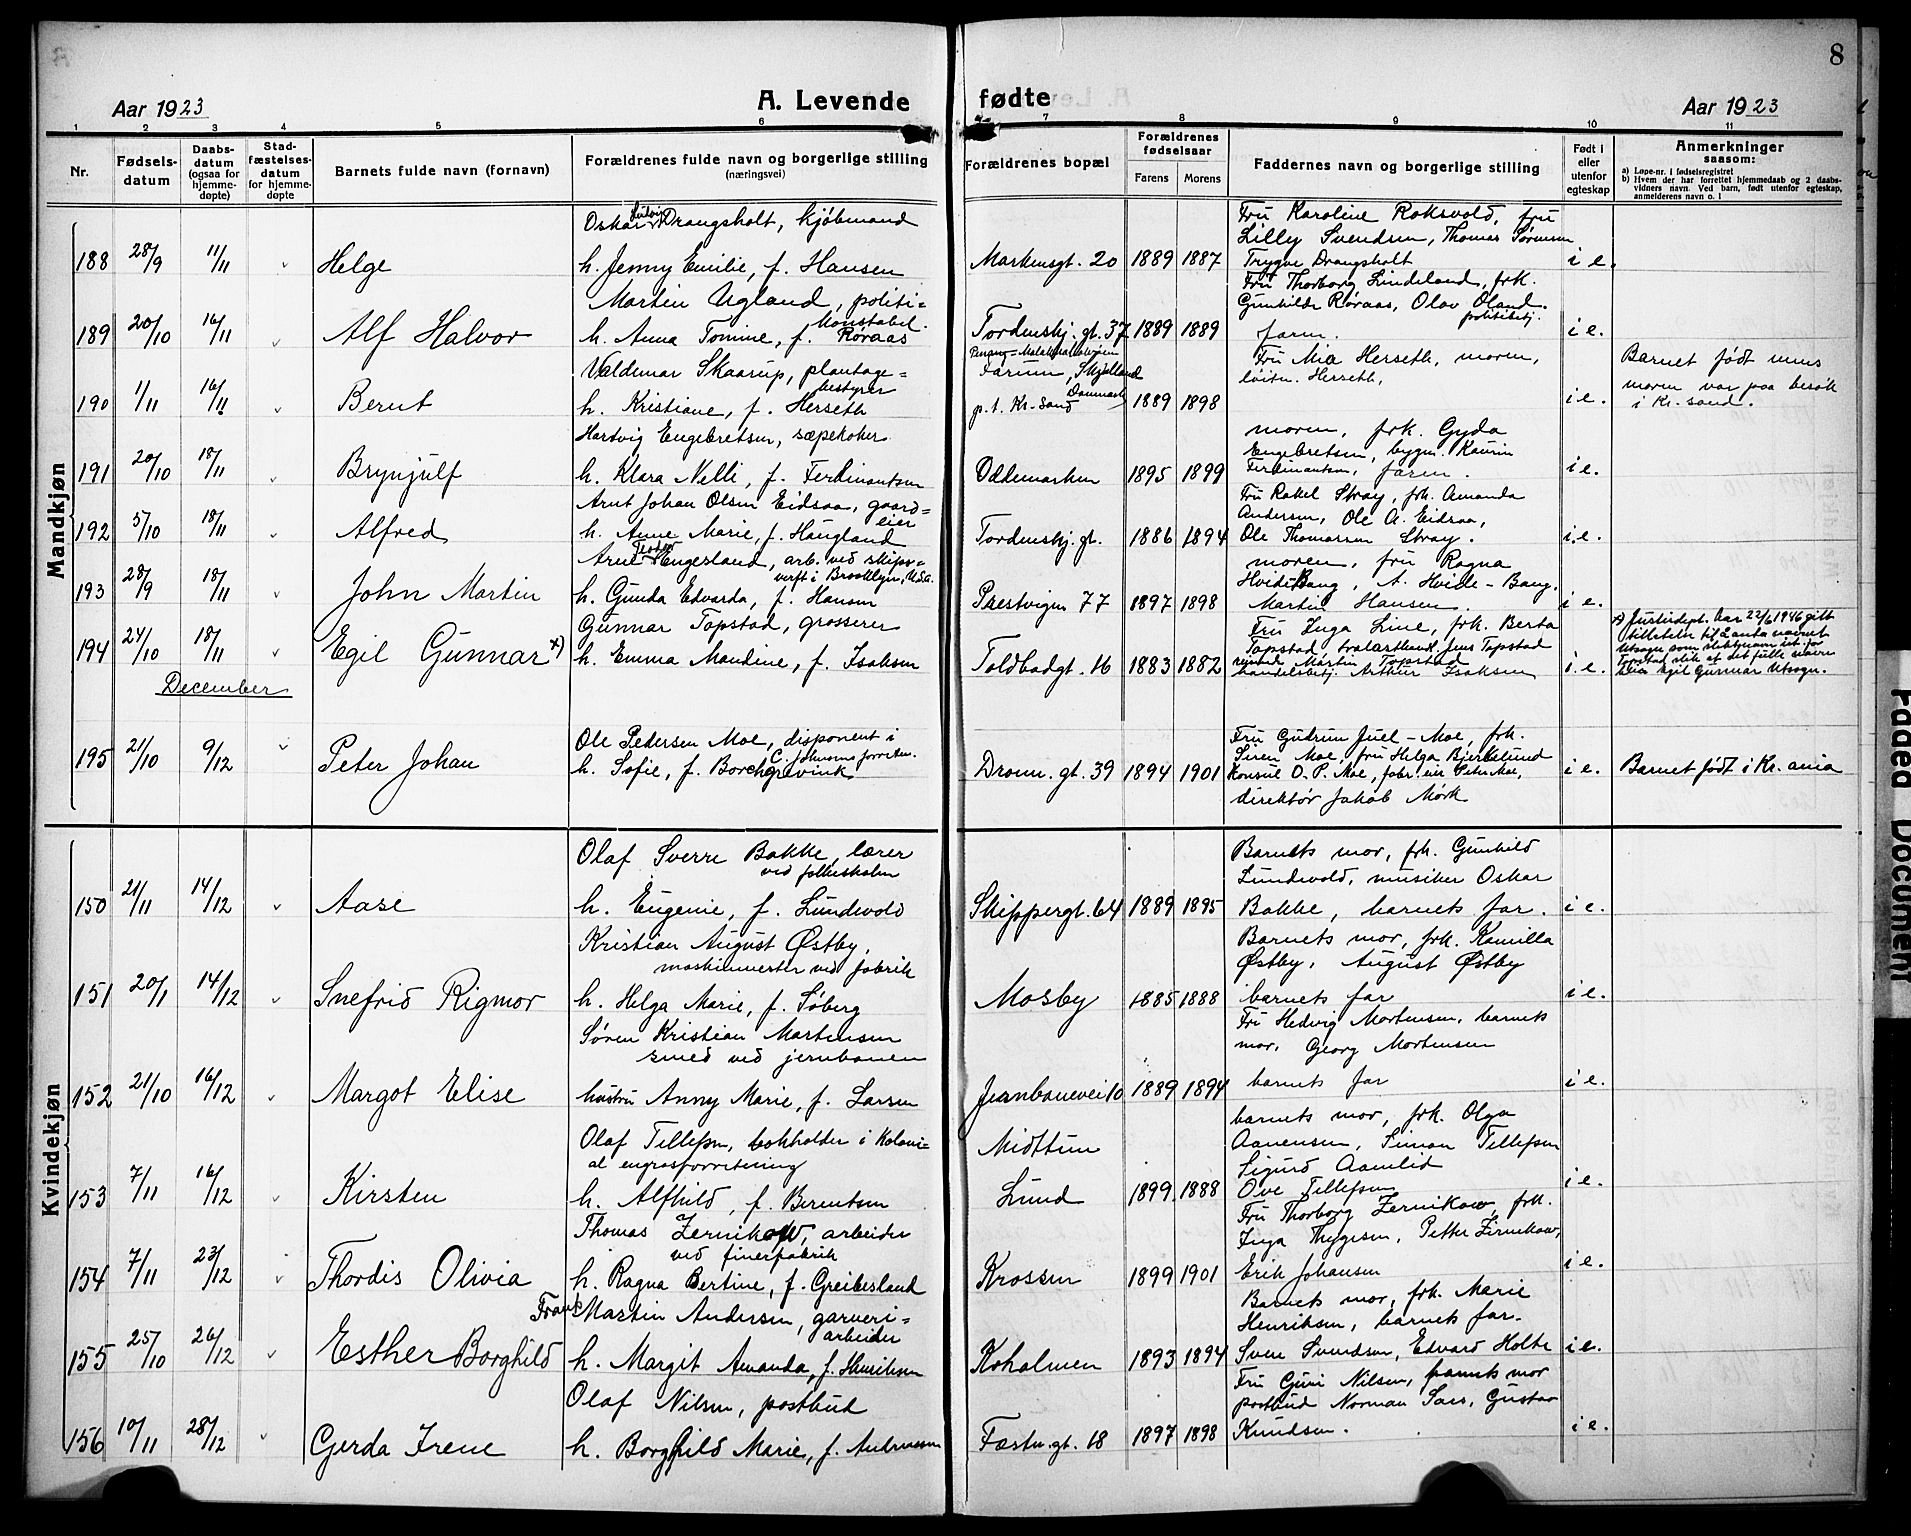 8
Aar 1923
A. Levende
fødte
Aar 1923
1 2 3 4 5 6 7 8 9 10 11
Nr.
Fødsels-
datum
Daabs-
datum
(ogsaa for
hjemme-
døpte)
Stad-
fæstelses-
datum
for hjemme-
døpte
Barnets fulde navn (fornavn)
Forældrenes fulde navn og borgerlige stilling
(næringsvei)
Forældrenes bopæl
Forældrenes
fødselsaar
Farens
Morens
Faddernes navn og borgerlige stilling
Født i
eller
utenfor
egteskap
Anmerkninger
saasom:
a) Løpe-nr. i fødselsregistret
b) Hvem der har forrettet hjemmedaab og 2 daabs-
vidners navn. Ved barn, født utenfor egteskap,
anmelderens navn o. l.
Mandkjøn
188 28/9 11/11 Helge
Oskar Ludvig Drangsholt, kjøbmand
h. Jenny Emilie, f. Hansen
Markensgt. 20 1889 1887
Fru Karoline Roksvold, fru
Lilly Svendsen, Thomas Sørensen
Trygve Drangsholt
i e.
189 20/10 16/11 Alf Halvor
Martin Ugland, politi=
konstabel.
h. Anna Tomine, f. Røraas
Tordenskj. gt. 37 1889 1889
Fru Thorborg Lindeland, frk.
Gunhilde Røraas, Olav Øland
politibetj.
faren.
i e.
190 1/11 16/11 Bernt
Valdemar Skaarup, plantage=
bestyrer
h. Kristiane, f. Herseth
Farum, Sjælland
Danmark
p.t. Kr.sand 1889 1898
Fru Mia Herseth, moren,
løitn. Herseth,
i e.
Barnet født mens
moren var paa besøk
i Kr.sand.
191 20/10 18/11 Brynjulf
Hartvig Engebretsen, sæpekoker
h. Klara Nelli, f. Ferdinantsen
Oddemarken 1895 1899
moren, frk. Gyda
Engebretsen, bygm. Kaurin
Ferdinantsen, faren.
i e.
192 5/10 18/11 Alfred
Arnt Johan Olsen Eidsaa, gaard=
eier
h. Anne Marie, f. Haugland
Tordenskj. gt. 1886 1894
Fru Rakel Stray, frk. Amanda
Andersen, Ole A. Eidsaa,
Ole Thomassen Stray.
i.e.
193 28/9 18/11 John Martin
Arne Engesland, arb. ved skips=
verft i Brooklyn, U.S.A.
h. Gunda Edvarda, f. Hansen
Prestvigen 77 1897 1898
moren, fru Ragna
Hvide-Bang, A. Hvide-Bang.
Martin Hansen.
i e.
194 24/10 18/11 Egil Gunnar x)
Gunnar Topstad, grosserer
h. Emma Mandine, f. Isaksen
Toldbodgt. 16 1883 1882
Fru Inga Line, frk. Berta
Topstad, Jens Topstad
Martin Topstad
handelsbetj. Arthur Isaksen
i.e.
x) Justisdept. har 22/6 1946 gitt
tillatelse til å anta navnet
Utsogn som slektsnavn ist. for
Topstad slik at det fulle navn
blir Egil Gunnar Utsogn.
December
195 21/10 9/12 Peter Johan
Ole Pedersen Moe, disponent i
C. Johnsens forretn.
h. Sofie, f. Borchgrevink
Dronn. gt. 39 1894 1901
Fru Gudrun Juel-Moe, frk.
Siren Moe, fru Helga Bjerkelund
Konsul O. P. Moe, fabr. eier Peter Moe,
direktør Jakob Mørk
i e.
Barnet født i Kr.ania
Kvindekjøn
150 21/11 14/12 Aase
Olaf Sverre Bakke, lærer
ved folkeskolen
h. Eugenie, f. Lundevold
Skippergt. 64 1889 1895
Barnets mor, frk. Gunhild
Lundevold, musiker Oskar
Bakke, barnets far.
i e.
151 20/1 14/12 Snefrid Rigmor
Kristian August Østby,
maskinmester ved fabrik
h. Helga Marie, f. Søberg
Mosby 1885 1888
Barnets mor, frk. Kamilla
Østby, August Østby
barnets far
i e.
152 21/10 16/12 Margot Elise
Søren Kristian Mortensen
smed ved jernbanen
hustru Anny Marie, f. Larsen
Jernbanevei 10 1889 1894
Fru Hedvig Mortensen, barnets
mor, Georg Mortensen
barnets far
i e.
153 7/11 16/12 Kirsten
Olaf Tillefsen, bokholder i Koloni=
al engrosforretning
h. Alfhild, f. Berentsen
Midttun
Lund 1899 1888
barnets mor, frk. Olga
Aanensen, Simon Tillefsen
Sigurd Aamlid
Ove Tillefsen
i e.
154 7/11 23/12 Thordis Olivia
Thomas Zernikow, arbeider
ved finerfabrik
h. Ragna Bertine, f. Greibesland
Krossen 1899 1901
Fru Thorborg Zernikow, frk.
Inga Thygesen, Petter Zernikow,
Erik Johansen
i e.
155 25/10 26/12 Esther Borghild
Frank Martin Andersen, garveri=
arbeider
h. Margit Amanda, f. Henriksen
Koholmen 1893 1894
Barnets mor, frk. Marie
Henriksen, barnets far.
Sven Svendsen, Edvard Holte
i e.
156 10/11 28/12 Gerda Irene
Olaf Nilsen, postbud
h. Borghild Marie, f. Andreassen
Fæstn. gt. 18 1897 1898
Fru Guri Nilsen, barnets mor
postbud Norman Saes, Gustav
Knudsen.
i e.
Padded Document